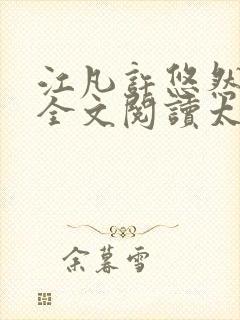 江凡許悠然
全文閱讀太
余暮雪